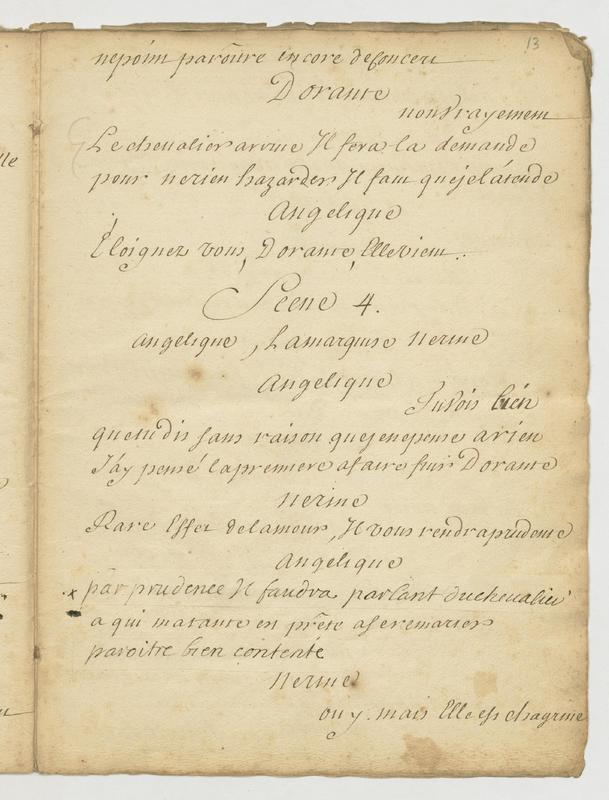 13
nepoint paroître encore deConcert
Dorante
non Vrayement
Le chevalier arrive Il fera la démande
pour nerien hazarder Il faut queje l'atende
Angelique
Éloignez vous, Dorante, Elle vient.
Scene 4.
Angelique, Lamarquise Nerine
Angelique
Tu Vois bién
quetu dis sans raison queje nepense arien
J'áy pensé lapremiere afaire fuir Dorante
Nerine
Rare Effet delamour, Il vous rendra prudente
Angelique
x par prudence Il faudra parlant du chevalier
a qui matante en prête aseremarier
paroitre bien contente
Nerine
ouy. mais Elle est chagrine